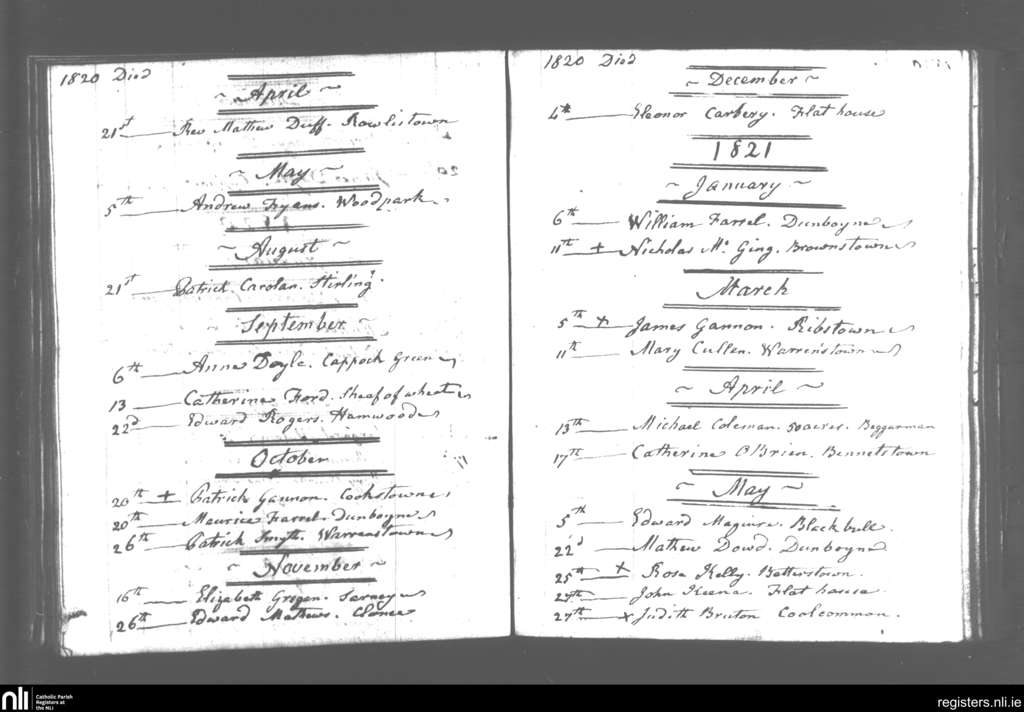 1820 Died
~ April ~
21st Rev Mathew Duff. Rowlistown
~ May ~
5th Andrew Fryans. Woodpark
~ August ~
21st Patrick Carolan. Stirling
~ September ~
6th Anne Doyle. Cappock Green
13 Catherine Ford. Sheaf of wheat
22d Edward Rogers. Hamwood
October
20th + Patrick Gannon. Cookstown
20th Maurice Farrel. Dunboyne
26th Patrick Smyth. Warrenstown
~ November ~
16th Elizabeth Sarney
26th Edward Mathews. Clonee
1820 Died
~ December ~
4th Eleonor Carbery. Flat house
1821
~ January ~
6th William Farrel. Dunboyne
11th + Nicholas Mc Ging. Brownstown
March
5th + James Gannon. Ribstown
11th Mary Cullen. Warrenstown
~ April ~
13th Michael Coleman. 50 acres. Beggarman
17th Catherine O'Brien. Bennetstown
~ May ~
5th Edward Maguire. Black bull.
22d Mathew Dowd. Dunboyne
25th + Rose Kelly. Betterstown.
27th John Keena. Flat house
27th + Judith Bruton Coolcommon.
nli
Catholic Parish
Registers at
the NLI
registers.nli.ie